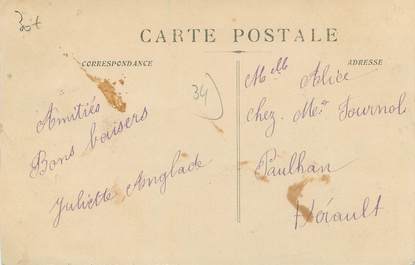 CARTE POSTALE
CORRESPONDANCE
ADRESSE
34
Amitiés
Bons baisers
Juliette Anglade
Melle Alice
chez Mr Journol
Paulhan
Hérault